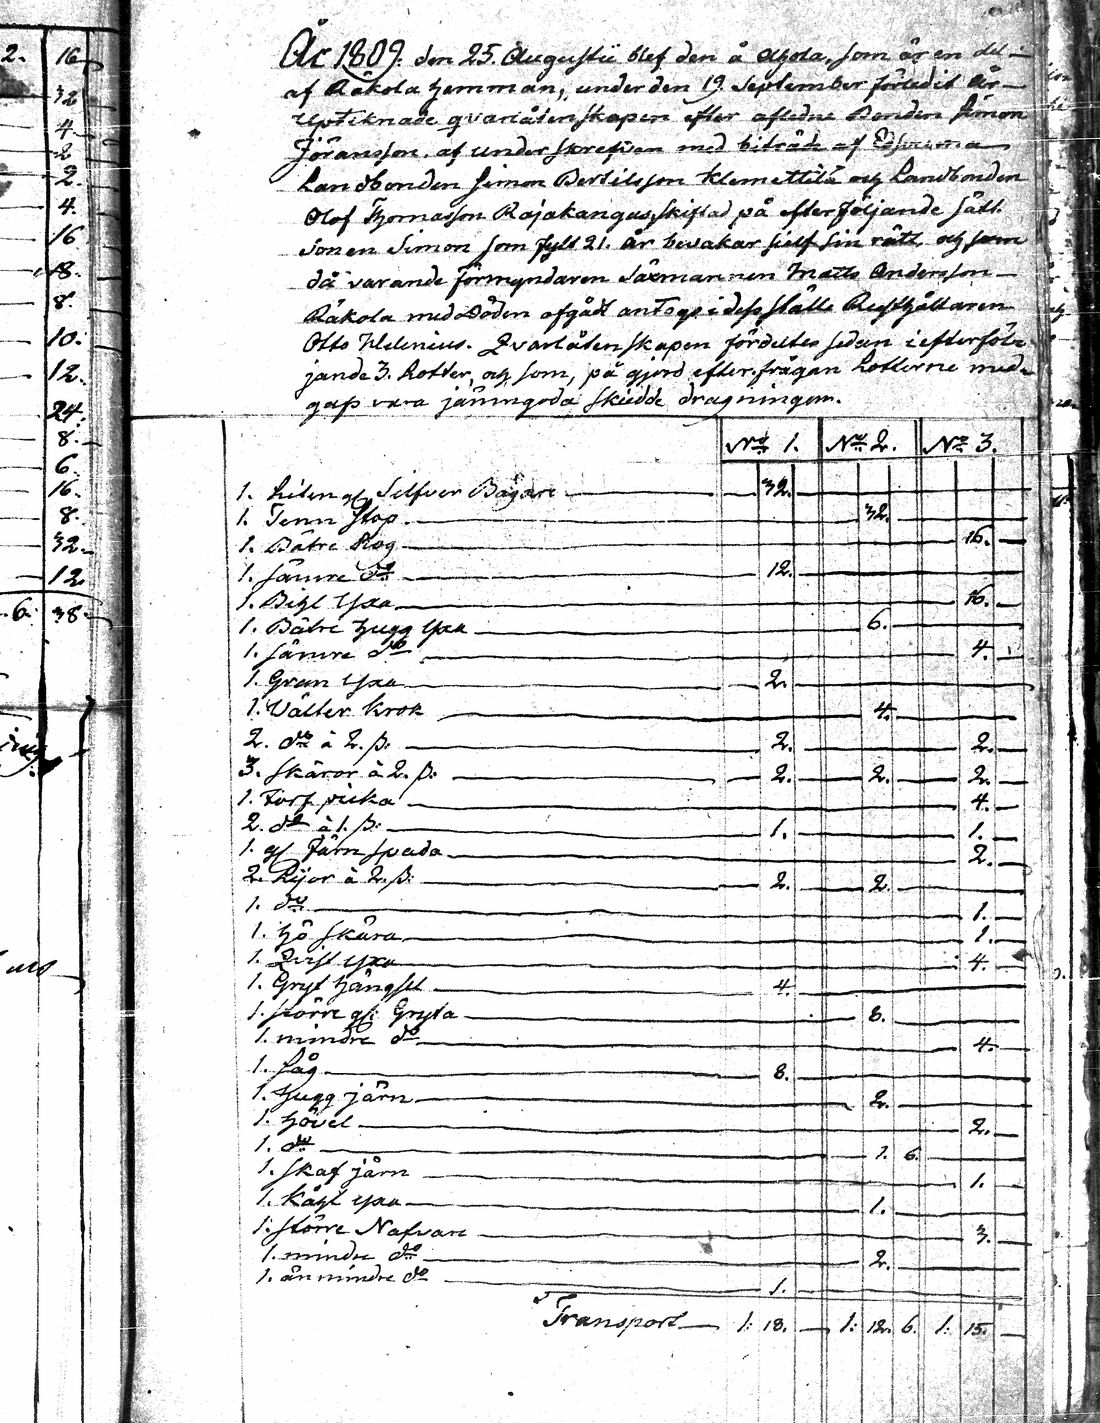 2. 16
32
4
2
2.
4.
16
18.
8.
10.
12.
24.
8.
6.
16.
8.
32.
12
6. 38.
År 1809. den 25. Augustii blef den å Ahola, som är en del
af Räkola hemman, under den 19. September förledit År
uptecknade qvarlåtenskapen efter aflidne Bonden Simon
Jöransson, af underskrefven med biträde af
Landbonden Simon Bertilsson Klemettilä och Landbonden
Olof Thomasson Rajakangas, skiftad på efterföljande sätt.
Sonen Simon som fyllt 21. år bevakar sielf sin rätt, och som
då varande förmyndaren Säxmannen Matts Andersson
Räkola med Döden afgådt antogs i dess ställe Rusthållaren
Otto Helenius. Qvarlåtenskapen fördeltes sedan i efterföl-
jande 3. Lotter, och som, på gjord efterfrågan Lotterne med-
gafs vara jämngoda skedde dragningen.
No 1. No 2. No 3.
1. Liten gl Silfver Bägare 32.
1. Tenn Stop 32.
1. Bätre Plog 16.
1. sämre do 12.
1. Bihl yxa 16.
1. Bätre hugg yxa 6.
1. sämre do 4.
1. Gran yxa 2.
1. Välter krok 4.
2. do à 2. ß. 2. 2.
3. skäror à 2. ß. 2. 2. 2.
1. Torf picka 4.
2. do à 1. ß: 1. 1.
1. gl Järn spada 2.
2. Lijor à 2. ß: 2. 2.
1. do 1.
1. hö skära 1.
1. Qvist yxa 4.
1. Gryt hängsel 4.
1. större gl: Gryta 8.
1. mindre do 4.
1. såg 8.
1. hugg järn 2.
1. hövel 2.
1. do 1. 6.
1. skaf järn 1.
1. kåhl yxa 1.
1. större Nafvare 3.
1. mindre do 2.
1. än mindre do 1.
Transport 1: 18. 1: 12. 6. 1: 15.